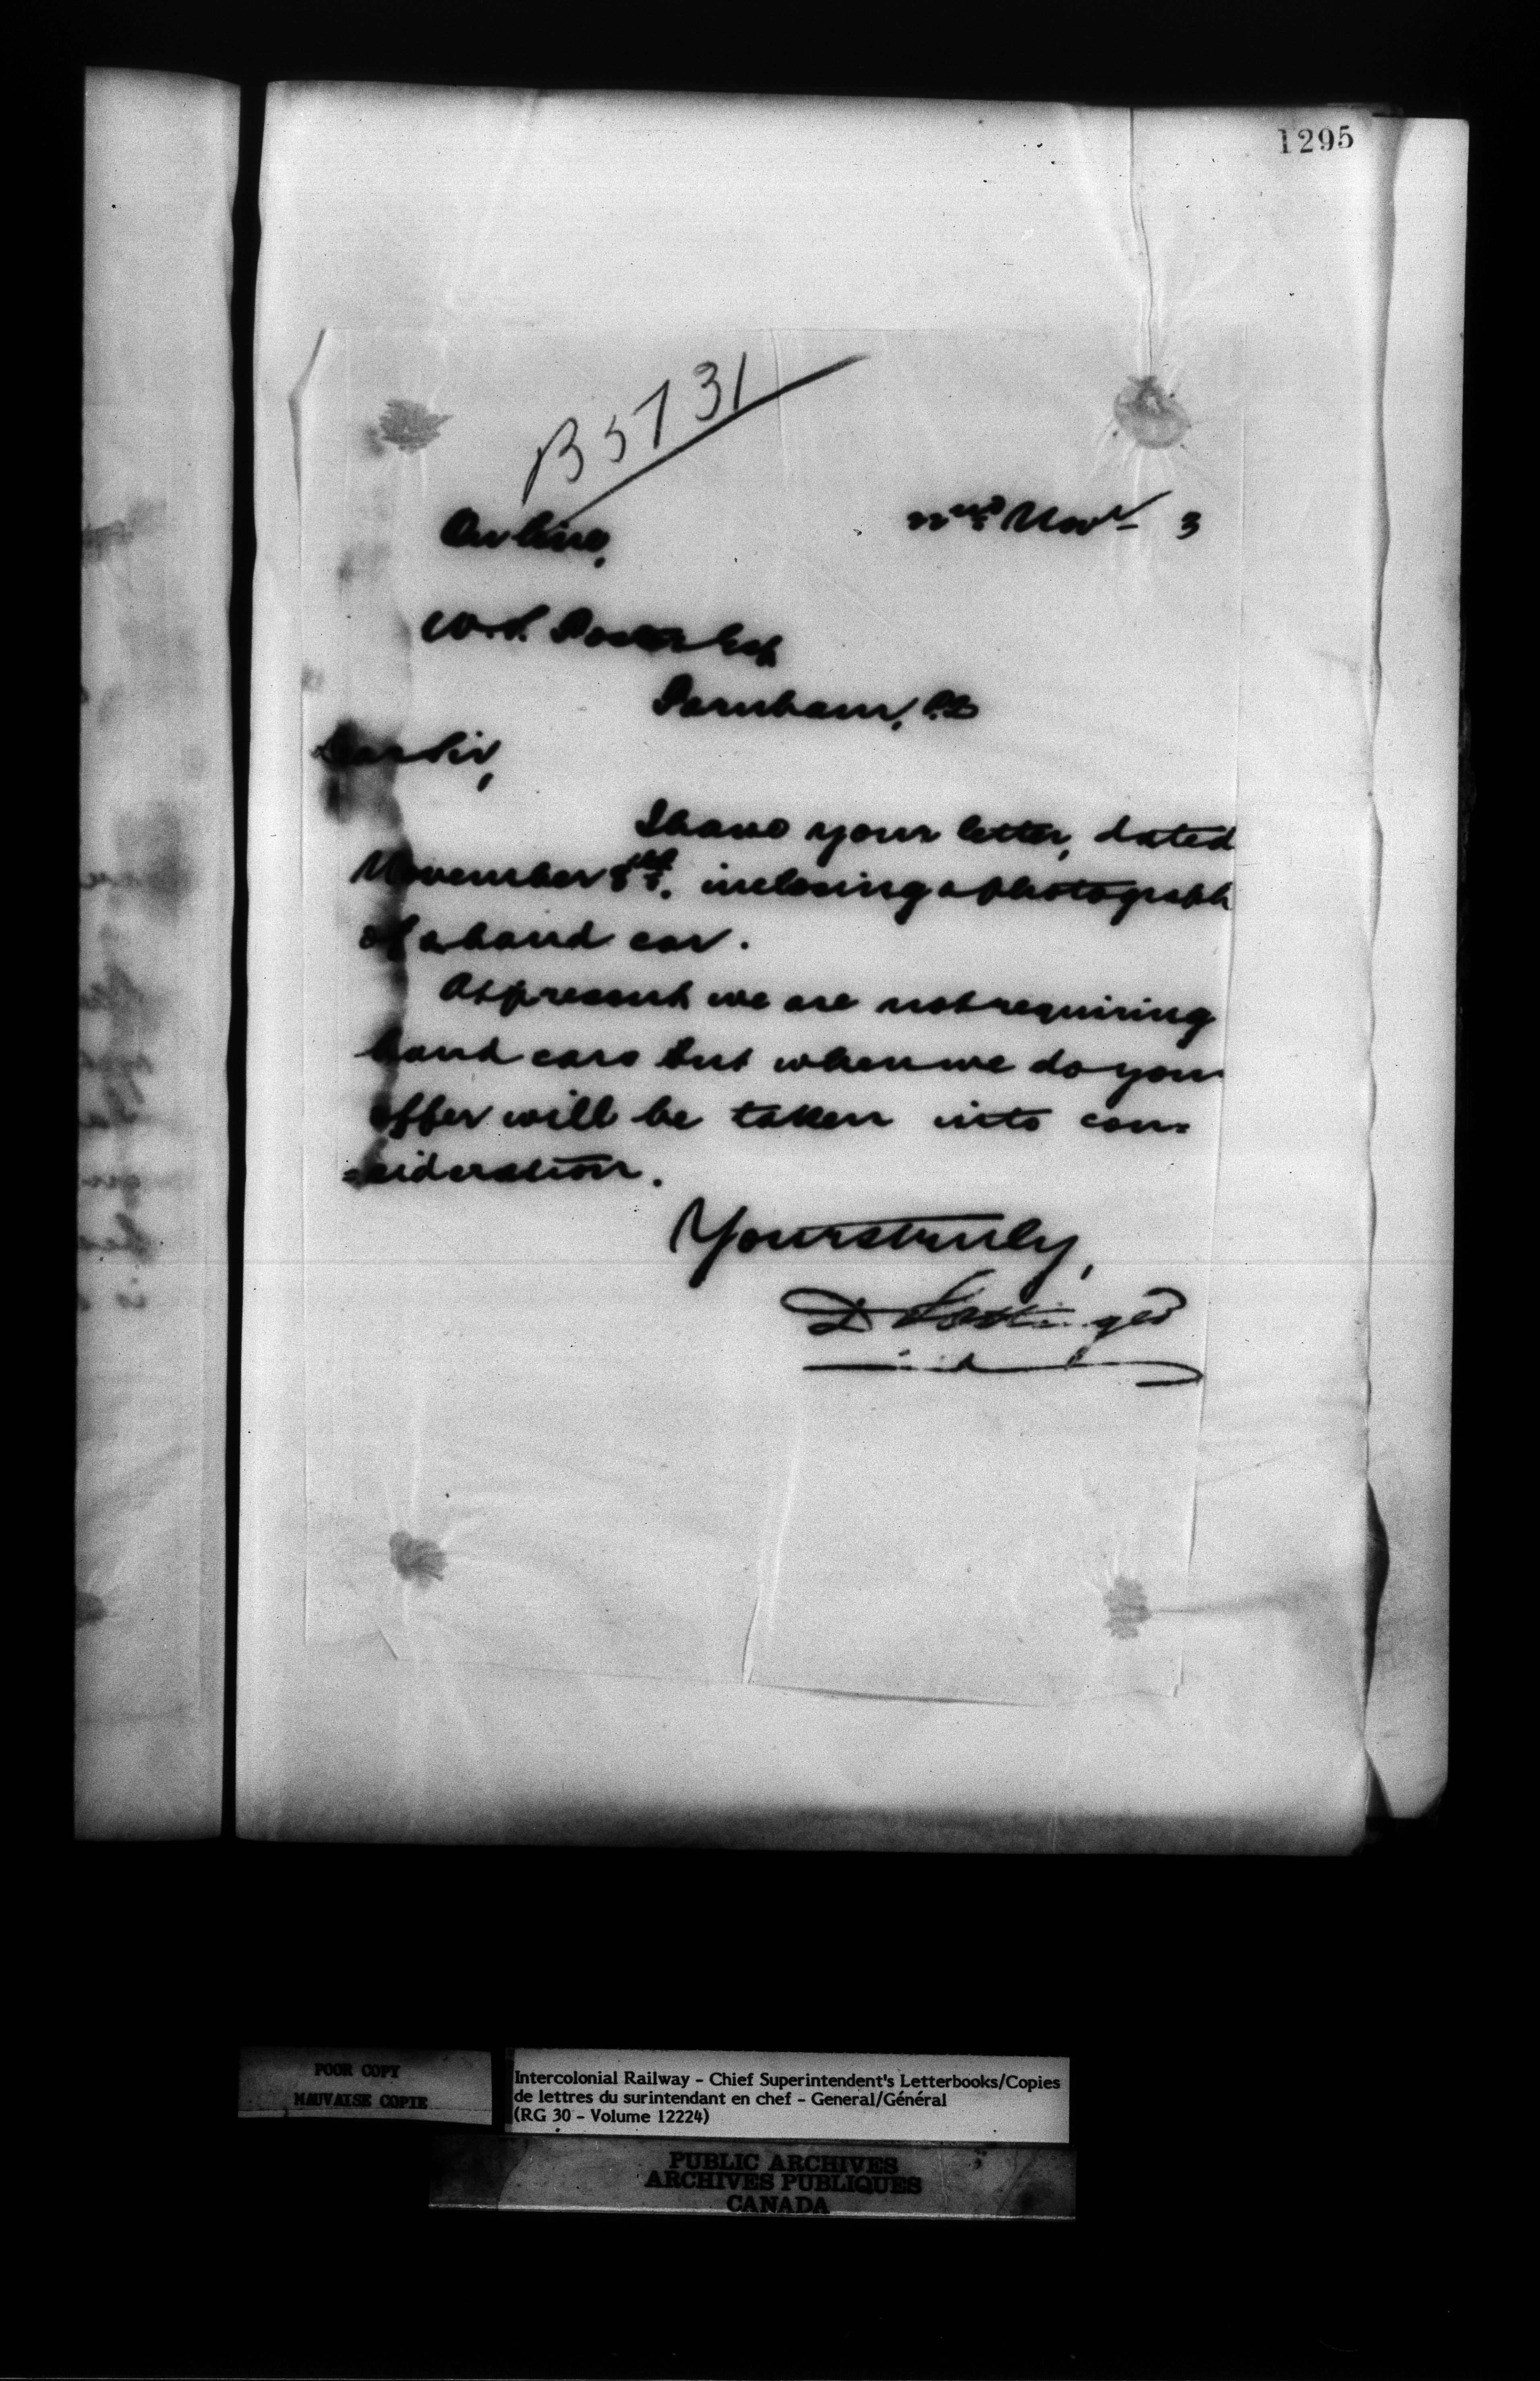 1295
B5731
On line,
22nd Novr 3
W.S. Foster Esq
Farnham, P.Q
Dear Sir,
I have your letter, dated
November 8th, inclosing a photograph
of a hand car.
At present we are not requiring
hand cars but when we do your
offer will be taken into con=
=sideration.
Yours truly,
D Pottinger
POOR COPY
MAUVAISE COPIE
Intercolonial Railway - Chief Superintendent's Letterbooks/Copies
de lettres du surintendant en chef - General/Général
(RG 30 - Volume 12224)
PUBLIC ARCHIVES
ARCHIVES PUBLIQUES
CANADA